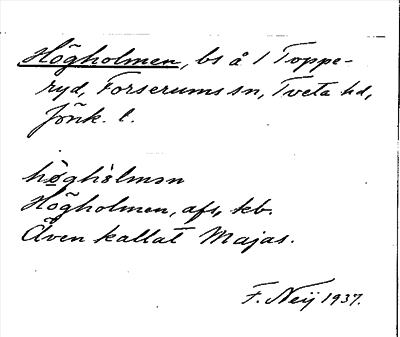 Högholmen, bs å 1 Toppe-
ryd, Forserums sn, Tveta hd,
Jönk. l.
högholmən
Högholmen, afs, kb.
Även kallat Majas.
F. Neij 1937.